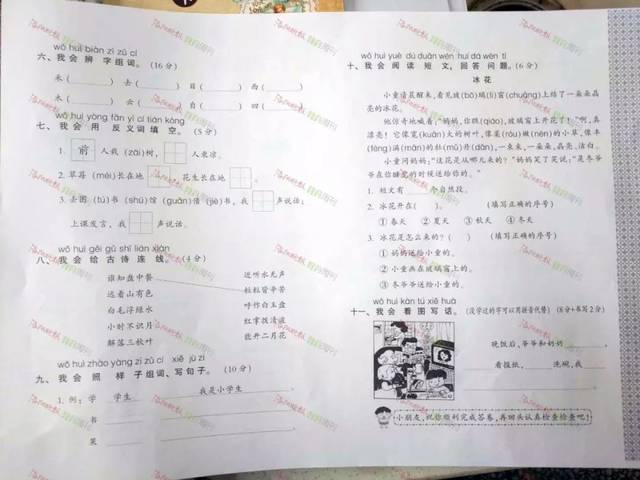 wǒ huì biàn zì zǔ cí
六、我会辨字组词。(16分)
禾( ) 去( ) 目( ) 西( )
木( ) 云( ) 自( ) 四( )
wǒ huì yòng fǎn yì cí tián kòng
七、我会用反义词填空。(5分)
1. 前 人栽(zāi)树, 人乘凉。
2. 草莓(méi)长在地 , 花生长在地 。
3. 去图(tú)书(shū)馆(guǎn)借(jiè)书,我 声说话;
上课发言,我 声说话。
wǒ huì gěi gǔ shī lián xiàn
八、我会给古诗连线。(4分)
谁知盘中餐 近听水无声
远看山有色 粒粒皆辛苦
白毛浮绿水 呼作白玉盘
小时不识月 红掌拨清波
解落三秋叶 能开二月花
wǒ huì zhào yàng zi zǔ cí xiě jù zi
九、我会照样子组词、写句子。(10分)
1. 例:学 学生 我是小学生
书
笑
wǒ huì yuè dú duǎn wén huí dá wèn tí
十、我会阅读短文,回答问题。(6分)
冰花
小童清晨醒来,看见玻(bō)璃(li)窗(chuāng)上结了一朵朵晶
亮的冰花。
他惊奇地喊着:“妈妈,你瞧(qiáo),玻璃窗上开花了!”“啊,真
漂亮!它像宽(kuān)大的树叶,像柔(róu)嫩(nèn)的小草,像丰
(fēng)满(mǎn)的牡(mǔ)丹(dān),一朵朵,一朵朵,晶亮,洁白。
小童问妈妈:“这花是从哪儿来的?”妈妈笑了笑说:“是冬爷
爷在你睡觉的时候送给你的。”
1. 短文有 个自然段。
2. 冰花开在( )。 (填写正确的序号)
①春天 ②夏天 ③秋天 ④冬天
3. 冰花是怎么来的?( ) (填写正确的序号)
①妈妈送给小童的。
②小童画在玻璃窗上的。
③冬爷爷送给小童的。
wǒ huì kàn tú xiě huà
十一、我会看图写话。(没学过的字可以用拼音代替)(8分+书写2分)
晚饭后,爷爷和奶奶
看报纸, 洗碗,我
。
小朋友,祝你顺利完成答卷,再回头认真检查检查吧!
洛阳晚报